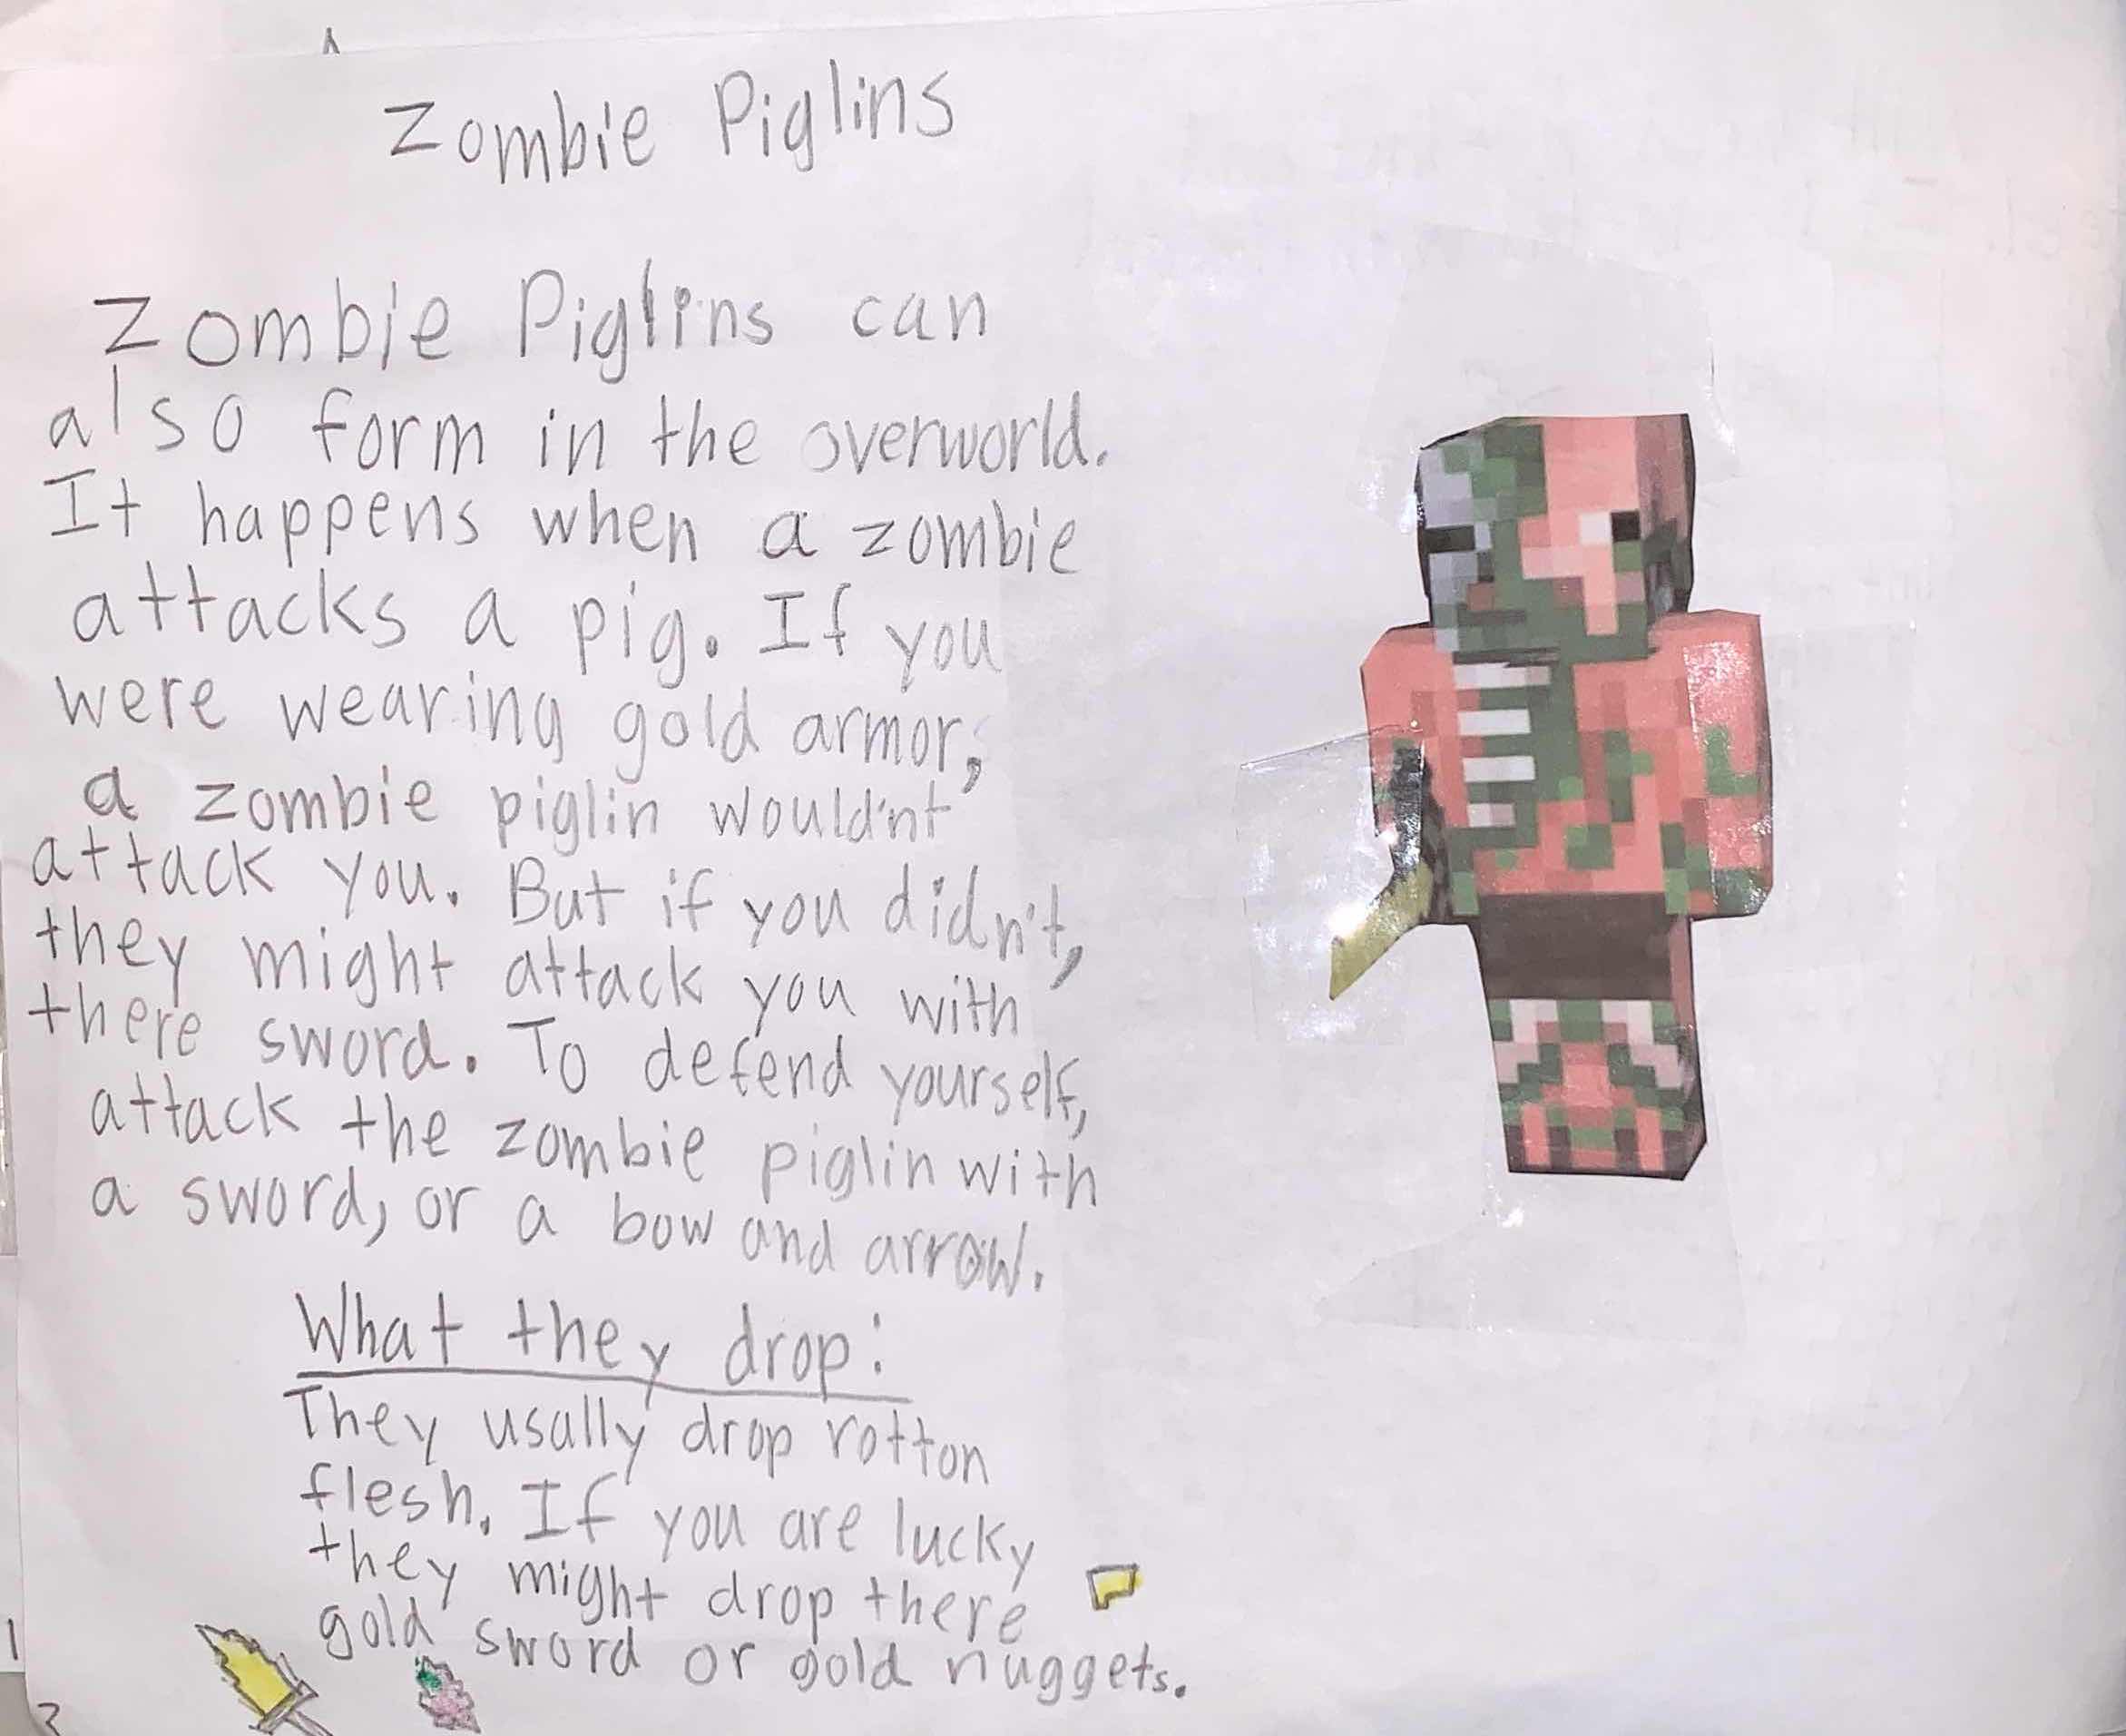 Zombie Piglins
Zombie Piglins can
also form in the overworld.
It happens when a zombie
attacks a pig. If you
were wearing gold armor,
a zombie piglin would'nt
attack you. But if you didn't,
they might attack you with
there sword. To defend yourself,
attack the zombie piglin with
a sword, or a bow and arrow.
What they drop:
They usally drop rotton
flesh. If you are lucky
they might drop there
gold sword or gold nuggets.
1